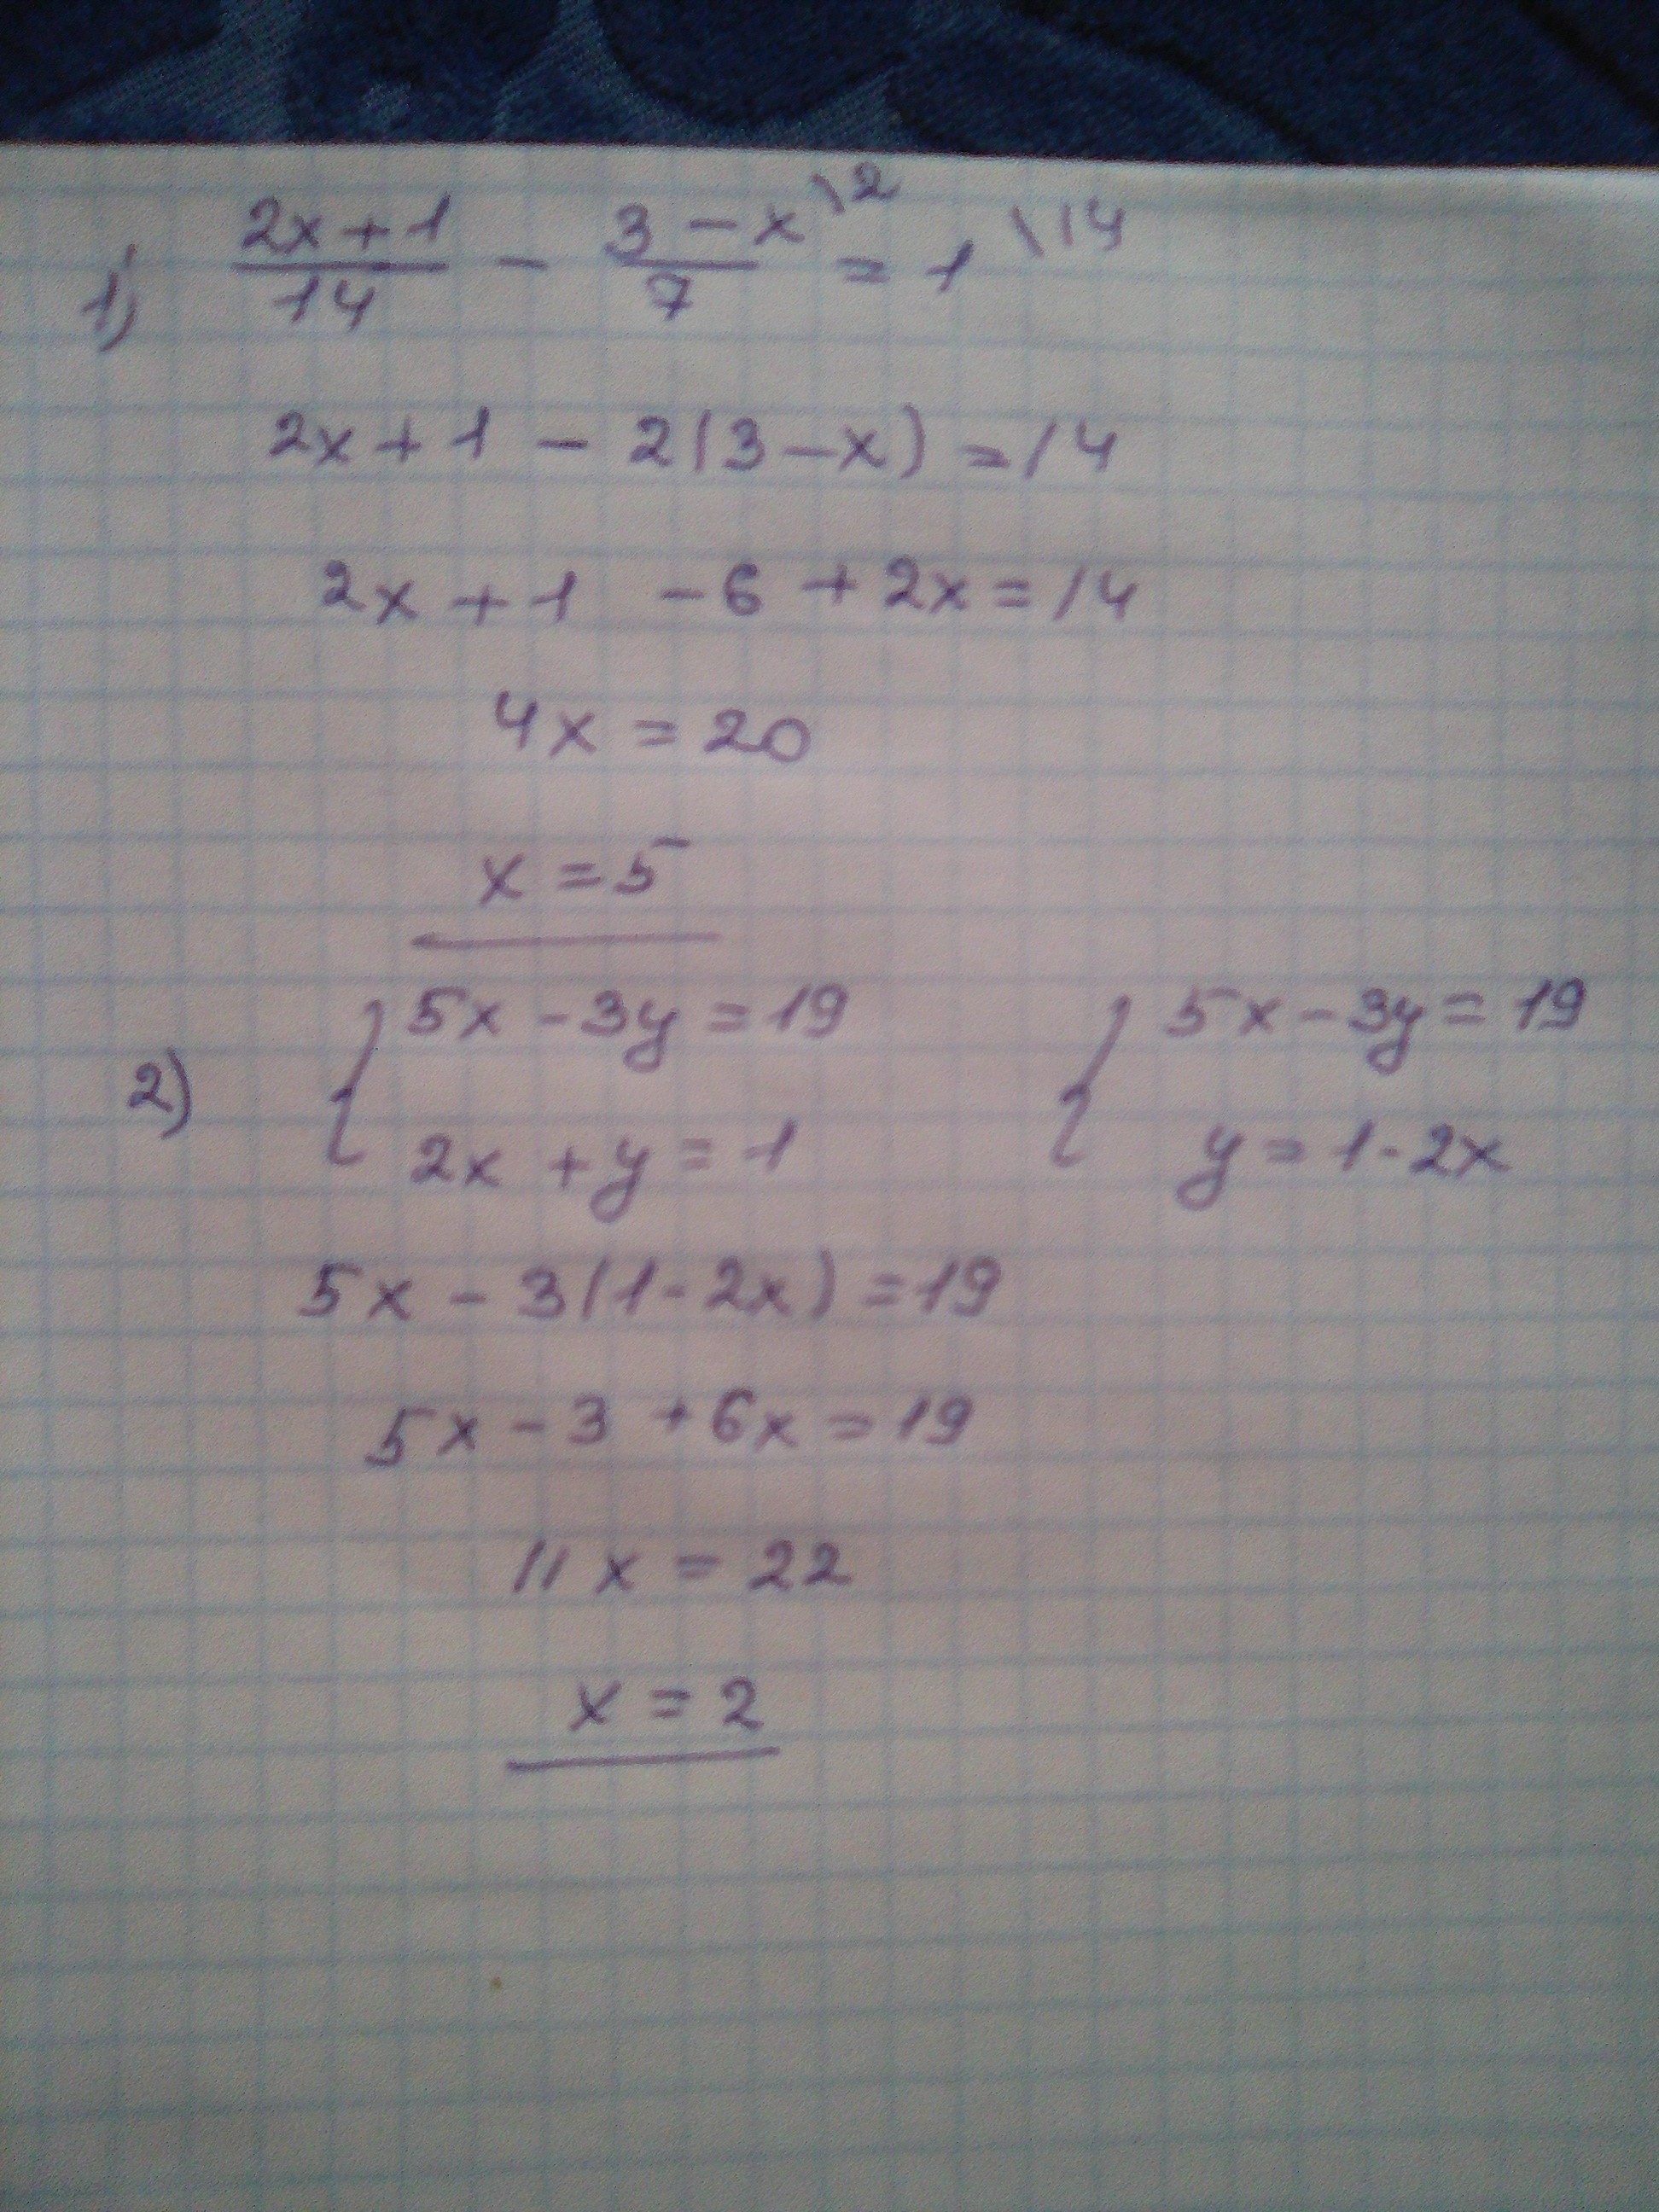 1) (2x+1)/14 - (3-x)/7 \2 = 1 \14
2x+1 - 2(3-x) = 14
2x+1 -6 +2x = 14
4x = 20
x = 5
2) { 5x - 3y = 19 { 5x - 3y = 19
2x + y = 1 y = 1 - 2x
5x - 3(1 - 2x) = 19
5x - 3 + 6x = 19
11x = 22
x = 2